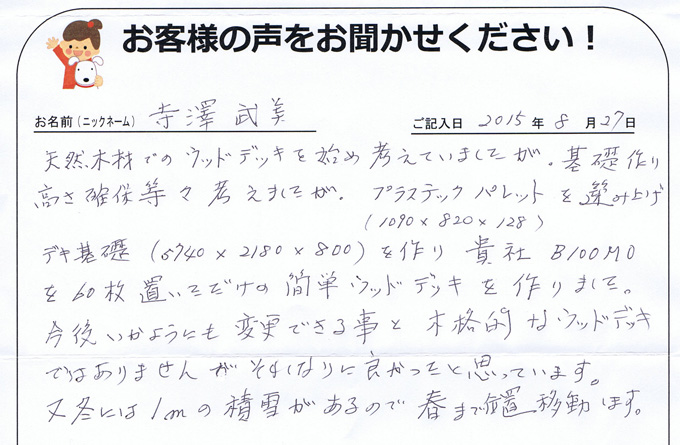 お客様の声をお聞かせください！
お名前（ニックネーム） 寺澤 武美 ご記入日 2015年 8月27日
天然木材でのウッドデッキを始め考えていましたが。基礎作り
高さ確保等々考えましたが。プラスチックパレットを積み上げ
（1090×820×128）
デキ基礎（5740×2180×800）を作り 貴社 B100MO
を60枚置いただけの簡単ウッドデッキを作りました。
今後いかようにも変更できる事と 本格的なウッドデッキ
ではありませんがそれなりに良かったと思っています。
又冬には1mの積雪があるので春まで位置移動します。